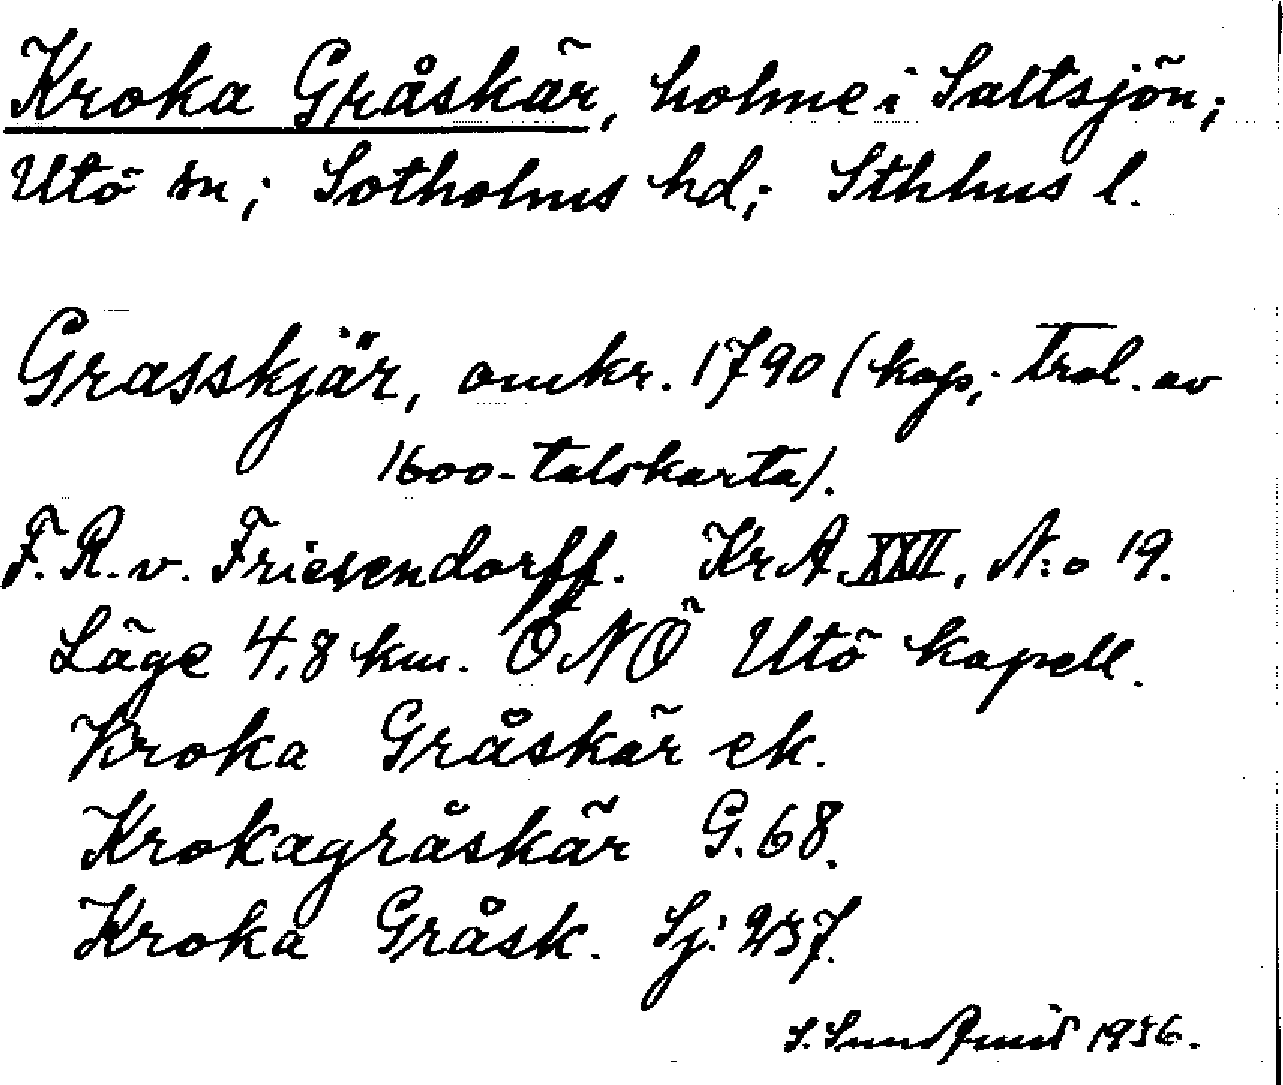 Kroka Gråskär, holme i Saltsjön;
Utö sn; Sotholms hd; Sthlms l.
Grasskjär, omkr. 1790 (kop; trol. av
1600-talskarta).
F. R. v. Friesendorff. KrA. XXII, N:o 19.
Läge 4,8 km. ÖNÖ Utö kapell.
Kroka Gråskär ek.
Krokagråskär G. 68.
Kroka Gråsk. Sj: 237.
S. 1936.